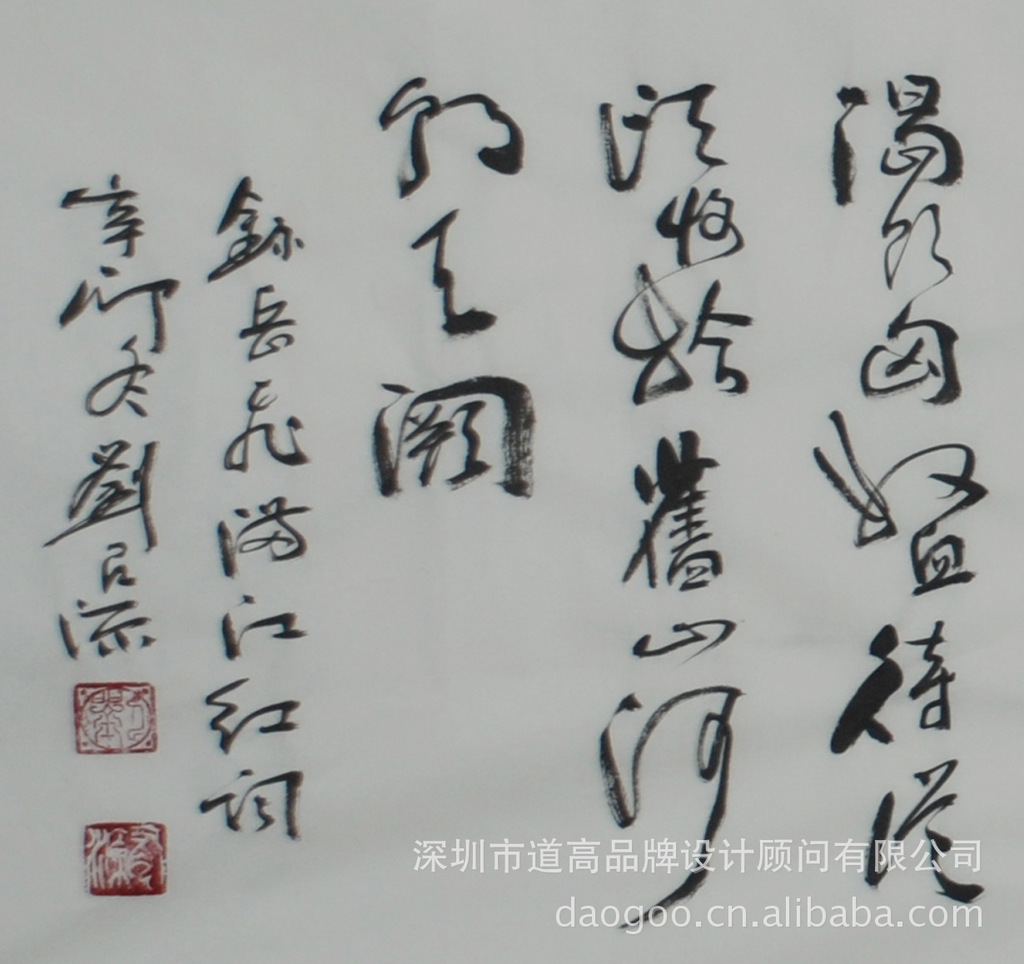 渴飲匈奴血待從
頭收拾舊山河
朝天闕
錄岳飛滿江紅詞
辛卯冬劉
深圳市道高品牌设计顾问有限公司
daogoo.cn.alibaba.com